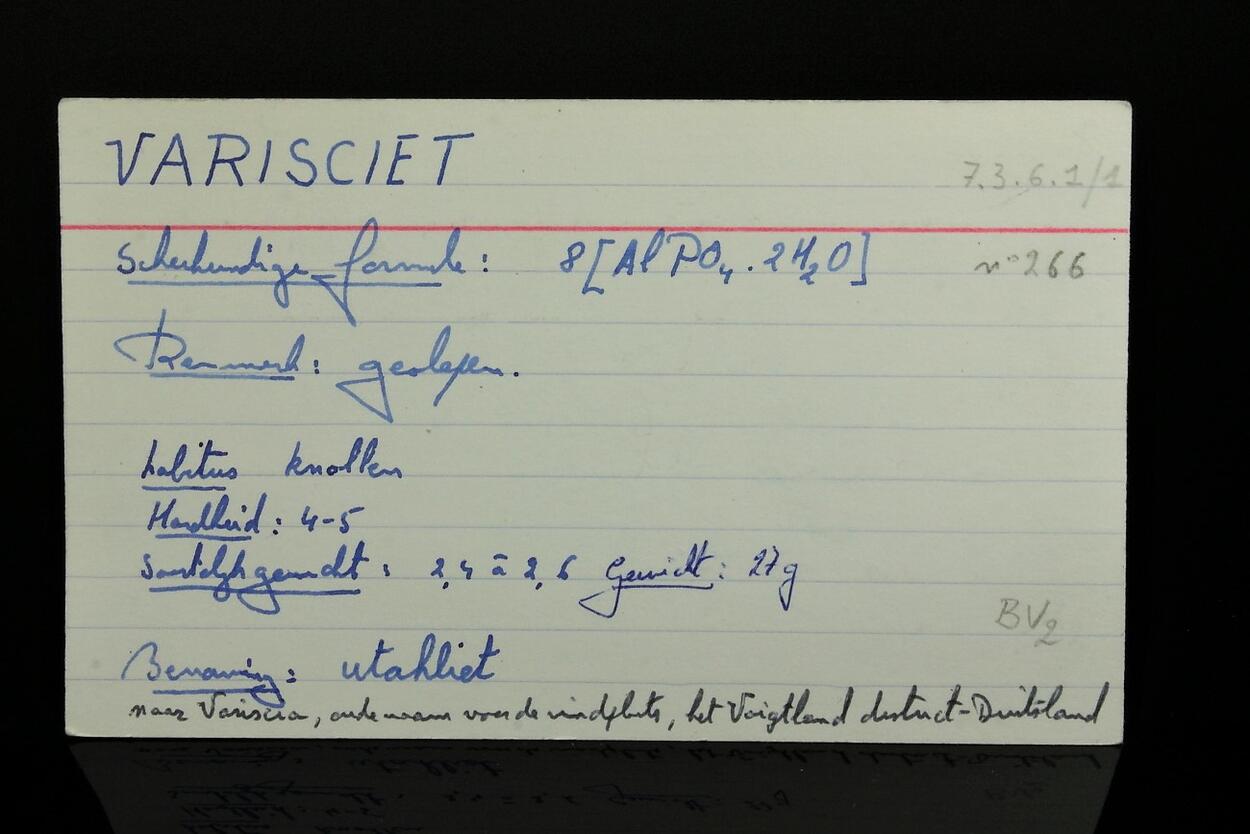 VARISCIET 7.3.6.1/1
Scheikundige formule : 8[AlPO₄.2H₂O] n° 266
Kenmerk : geslepen.
habitus knollen
Hardheid : 4-5
Soortelijk gewicht : 2,4 à 2,6 Gewicht : 27g
BV₂
Benaming : utahliet
naar Variscia, oude naam voor de vindplaats, het Voigtland district-Duitsland